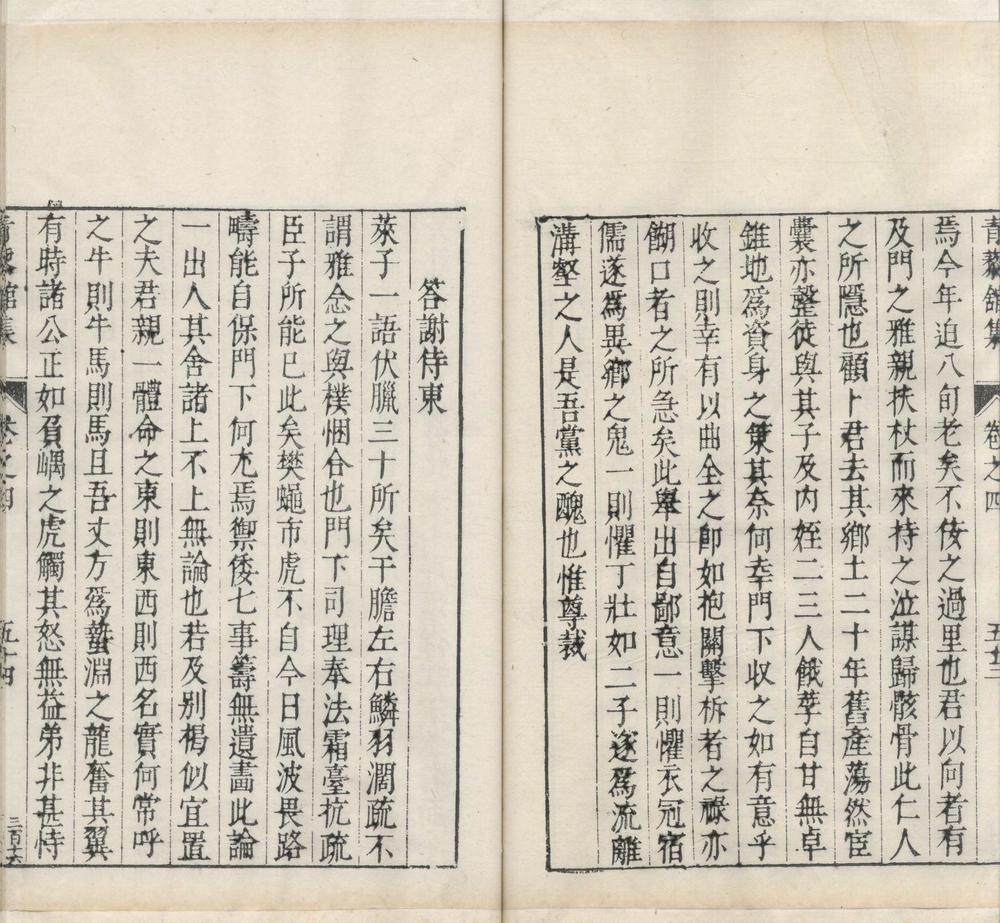 青藜館集 卷之四 五十三
焉今年迫八旬老矣不佞之過里也君以向者有
及門之雅親扶杖而來持之泣謀歸骸骨此仁人
之所隱也顧卜君去其鄉土二十年舊產蕩然宦
囊亦罄徒與其子及內姪二三人餓莩自甘無卓
錐地爲資身之策其奈何幸門下收之如有意乎
收之則幸有以曲全之卽如抱關擊柝者之祿亦
餬口者之所急矣此舉出自鄙意一則懼衣冠宿
儒遂爲異鄉之鬼一則懼丁壯如二子遂爲流離
溝壑之人是吾黨之醜也惟尊裁
答謝侍東
萊子一語伏臘三十所矣干膽左右鱗羽濶疏不
謂雅念之與樸悃合也門下司理奉法霜臺抗疏
臣子所能巳此矣樊蠅市虎不自今日風波畏路
疇能自保門下何尤焉禦倭七事籌無遺畫此論
一出入其舍諸上不上無論也若及别楬似宜置
之夫君親一體命之東則東西則西名實何常呼
之牛則牛馬則馬且吾丈方爲蟄淵之龍奮其翼
有時諸公正如負嵎之虎觸其怒無益弟非甚恃
青藜館集 卷之四 五十四